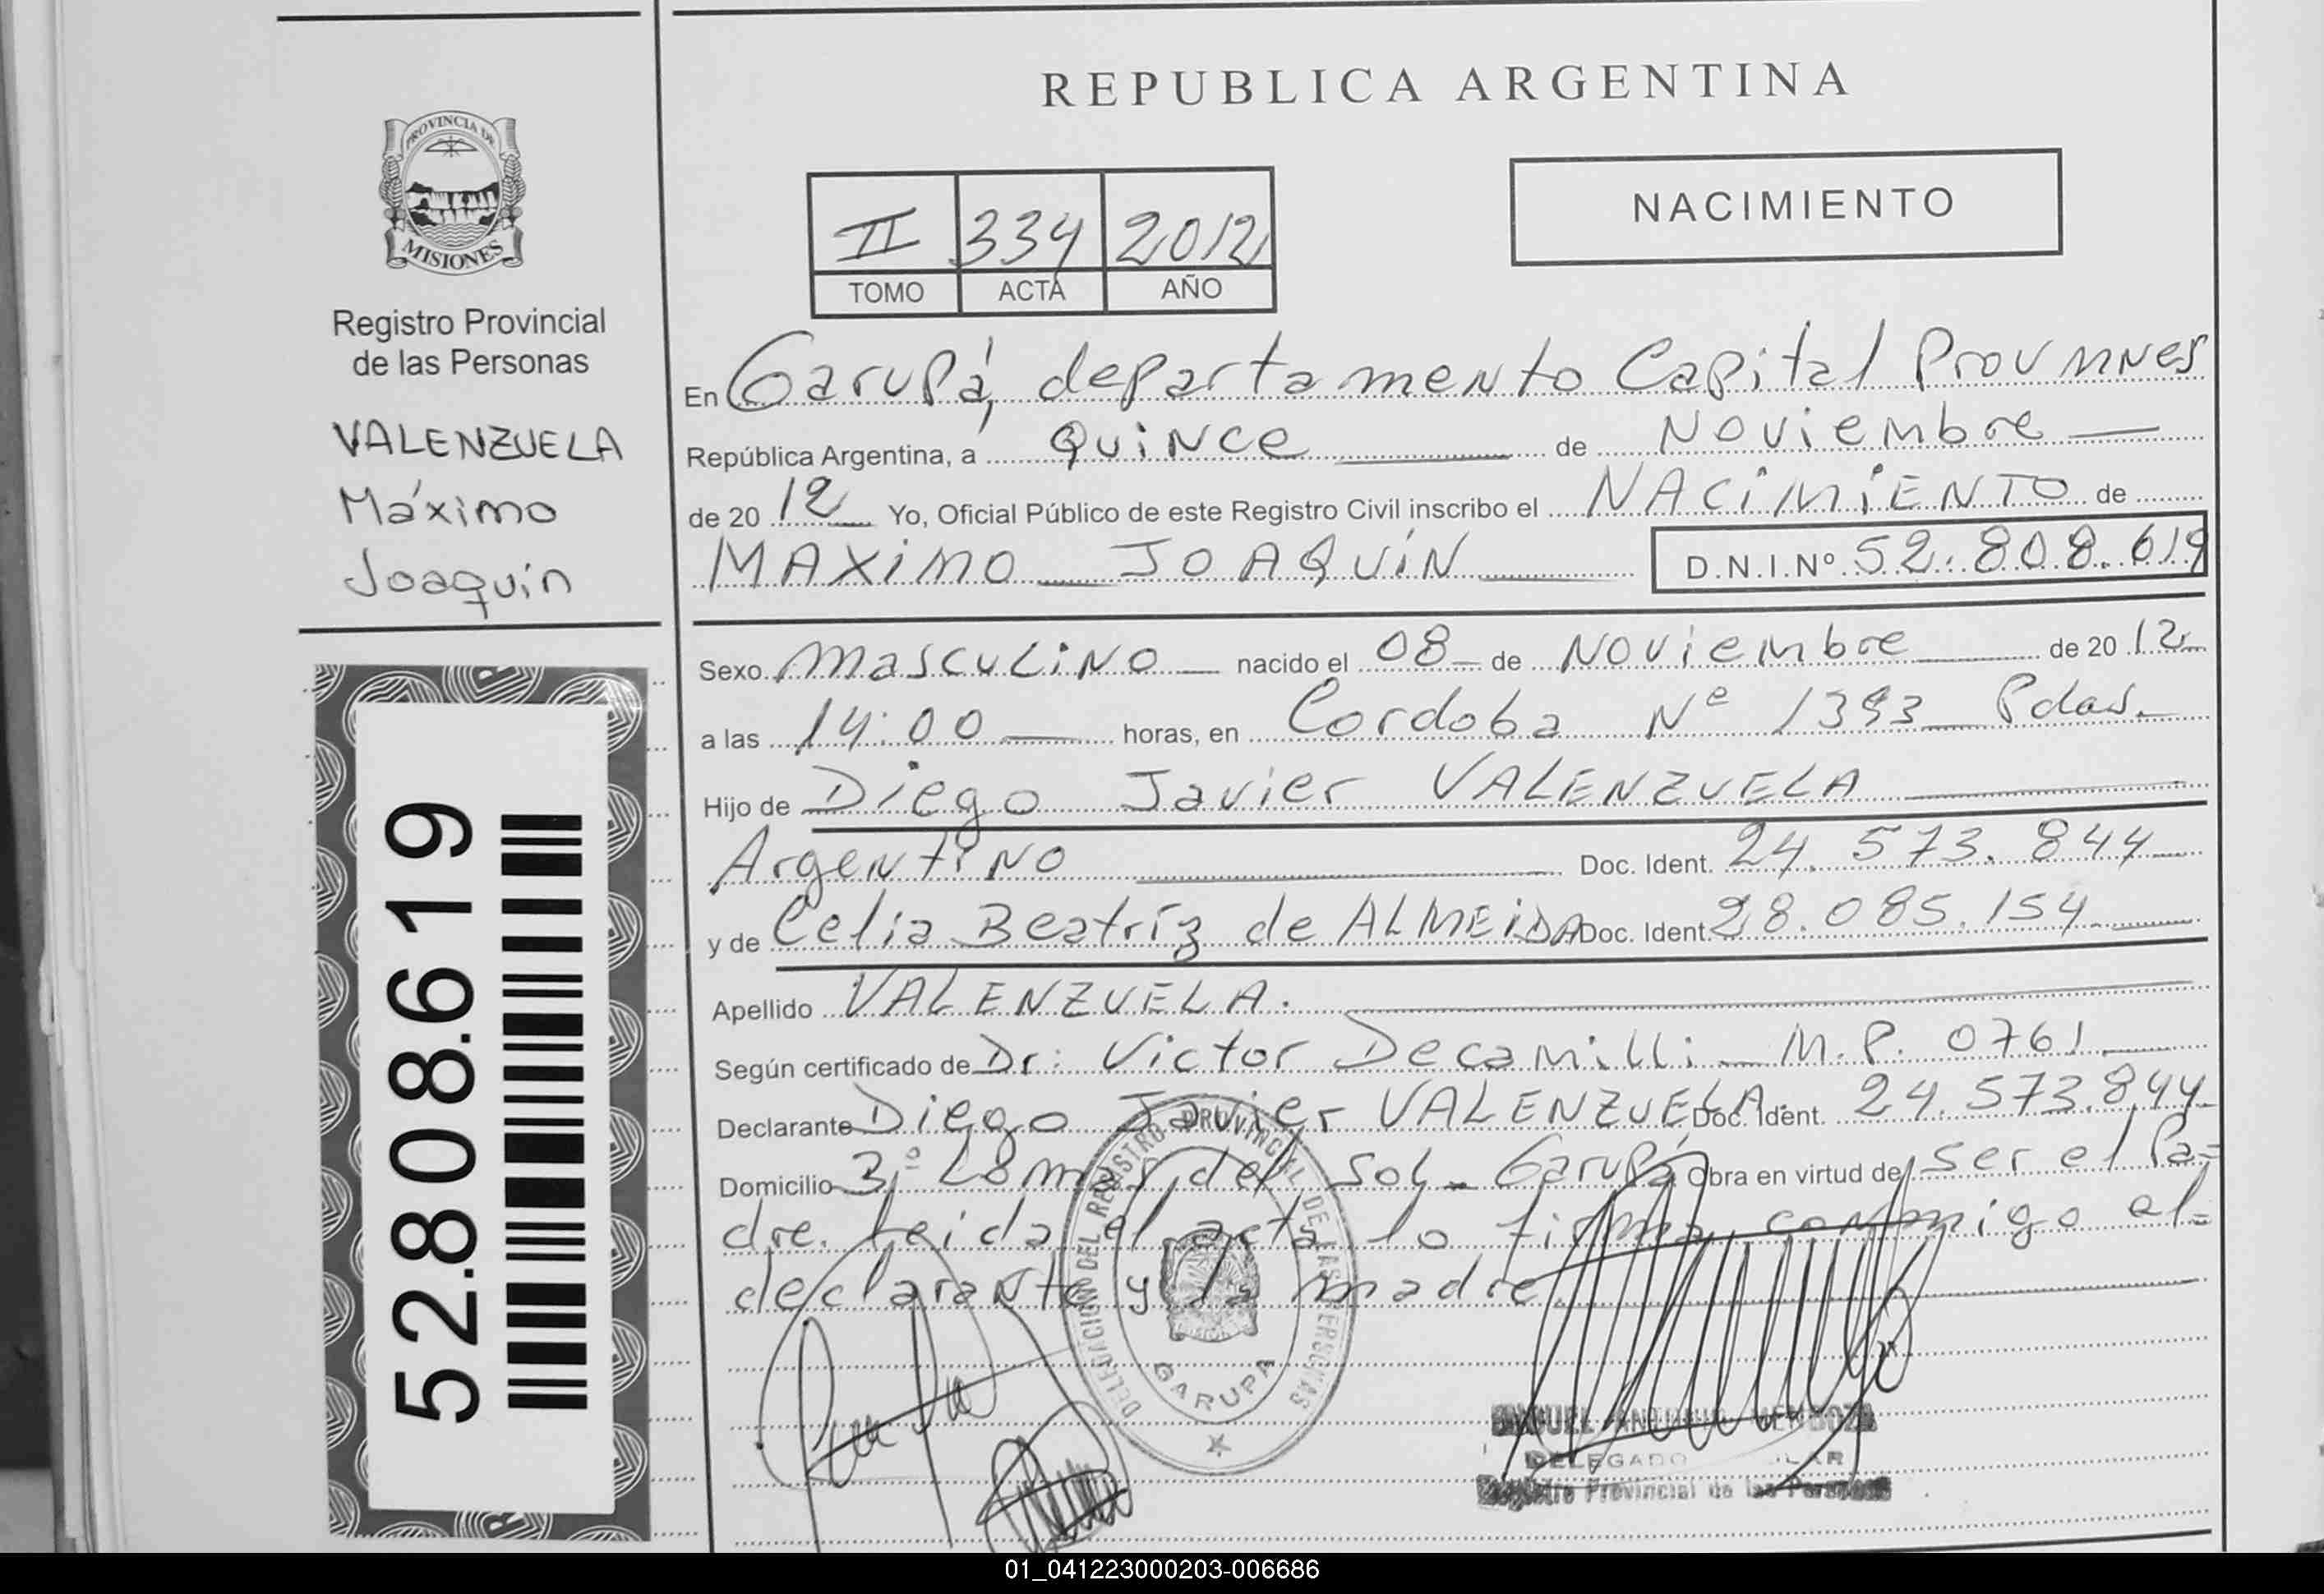 REPUBLICA ARGENTINA
PROVINCIA DE
MISIONES
Registro Provincial
de las Personas
VALENZUELA
Máximo
Joaquín
52.808.619
NACIMIENTO
II 334 2012
TOMO ACTA AÑO
En Garupá, departamento Capital Prov Mnes
República Argentina, a Quince de Noviembre
de 20 12 Yo, Oficial Público de este Registro Civil inscribo el NACIMIENTO de
MAXIMO JOAQUíN D.N.I.Nº 52.808.619
Sexo Masculino nacido el 08 de Noviembre de 20 12
a las 14:00 horas, en Cordoba Nº 1393 Pdas.
Hijo de Diego Javier VALENZUELA
Argentino Doc. Ident. 24.573.844
y de Celia Beatríz de ALMEIDA Doc. Ident. 28.085.154
Apellido VALENZUELA.
Según certificado de Dr: Victor Decamilli M.P. 0761
Declarante Diego Javier VALENZUELA. Doc. Ident. 24.573.844
Domicilio del Sol - Garupá Obra en virtud de ser el Pa=
dre. Leida el acta lo firma conmigo el=
declarante y la madre.
DELEGACION DEL REGISTRO PROVINCIAL DE LAS PERSONAS
GARUPA
MENDOZA
DELEGADO
Registro Provincial de las Personas
01_041223000203-006686